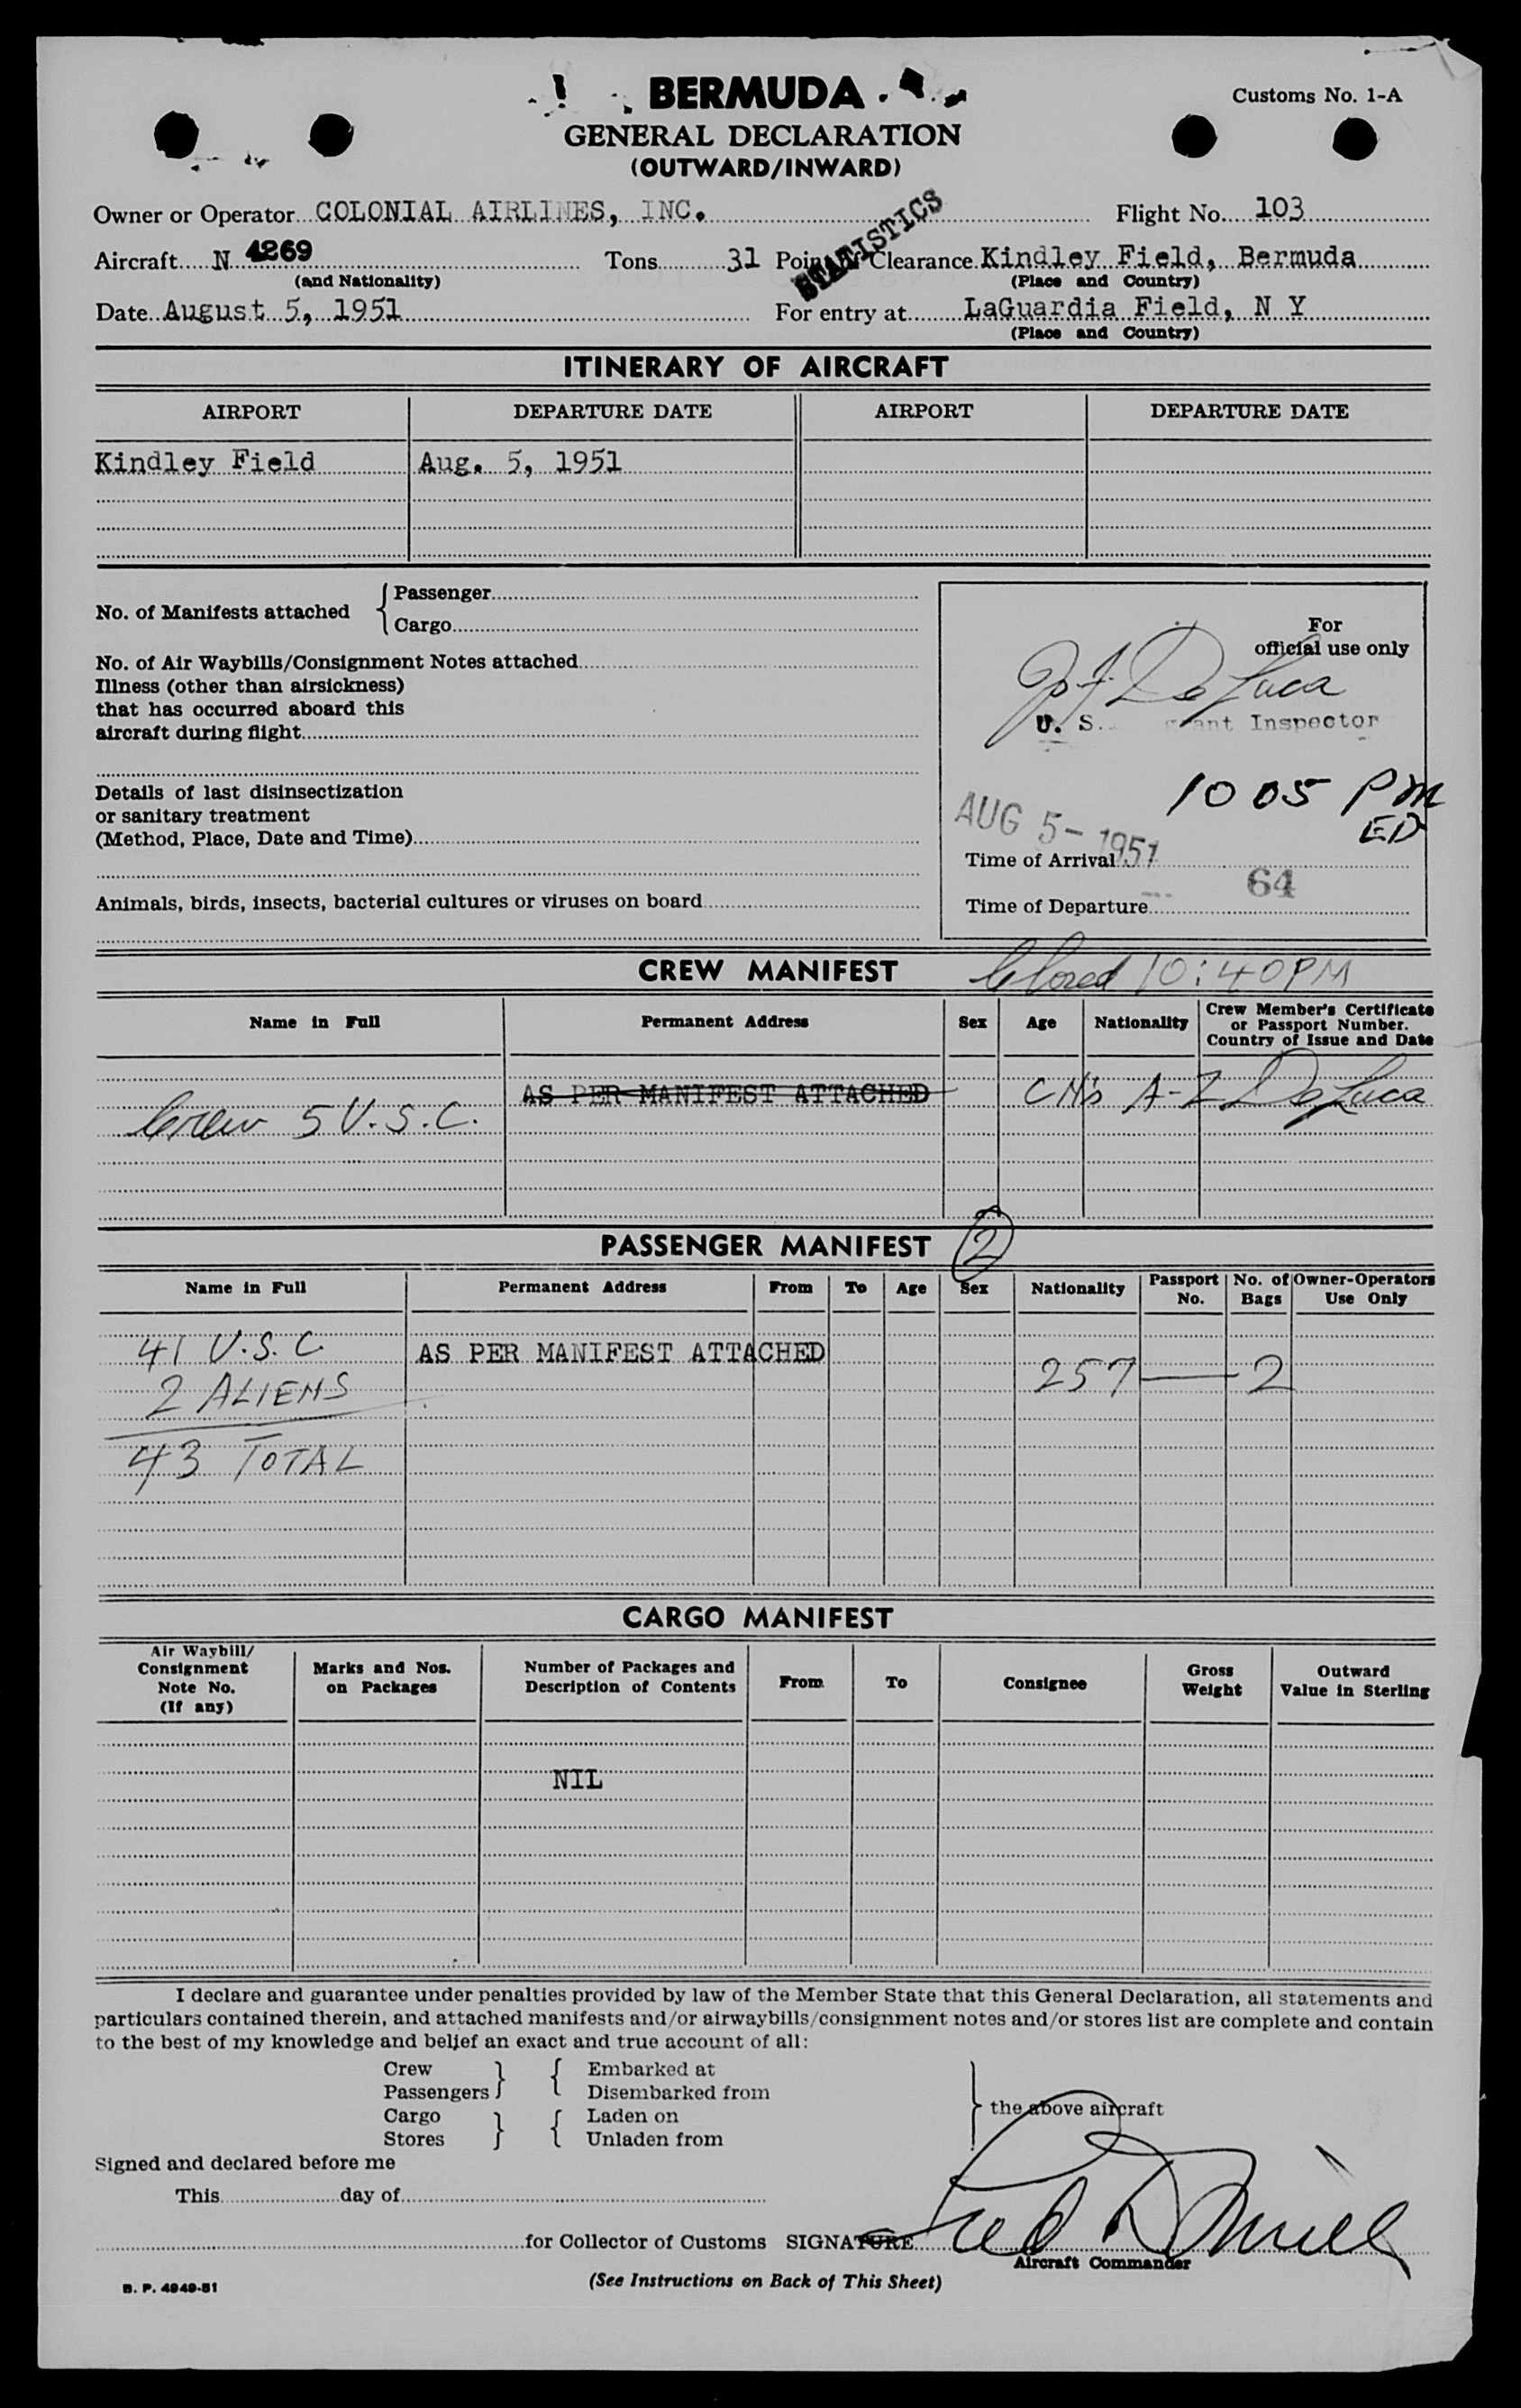 BERMUDA
Customs No. 1-A
GENERAL DECLARATION
(OUTWARD/INWARD)
Owner or Operator COLONIAL AIRLINES, INC. Flight No. 103
STATISTICS
Aircraft N 4269 Tons 31 Point of Clearance Kindley Field, Bermuda
(and Nationality) (Place and Country)
Date August 5, 1951 For entry at LaGuardia Field, N Y
(Place and Country)
ITINERARY OF AIRCRAFT
AIRPORT DEPARTURE DATE AIRPORT DEPARTURE DATE
Kindley Field Aug. 5, 1951
No. of Manifests attached { Passenger
Cargo
For
official use only
No. of Air Waybills/Consignment Notes attached
Illness (other than airsickness)
that has occurred aboard this
aircraft during flight
De Luca
U. S. grant Inspector
Details of last disinsectization
or sanitary treatment
(Method, Place, Date and Time)
1005 PM
ED
AUG 5- 1951
Time of Arrival
64
Animals, birds, insects, bacterial cultures or viruses on board
Time of Departure
CREW MANIFEST
Closed 10:40PM
Name in Full Permanent Address Sex Age Nationality Crew Member's Certificate
or Passport Number.
Country of Issue and Date
AS PER MANIFEST ATTACHED
Crew 5 U.S.C. A-Z De Luca
PASSENGER MANIFEST 2
Name in Full Permanent Address From To Age Sex Nationality Passport No. No. of Bags Owner-Operators Use Only
41 U.S.C. AS PER MANIFEST ATTACHED
2 ALIENS 257 — 2
43 TOTAL
CARGO MANIFEST
Air Waybill/
Consignment
Note No.
(If any)
Marks and Nos.
on Packages
Number of Packages and
Description of Contents
From
To
Consignee
Gross
Weight
Outward
Value in Sterling
NIL
I declare and guarantee under penalties provided by law of the Member State that this General Declaration, all statements and
particulars contained therein, and attached manifests and/or airwaybills/consignment notes and/or stores list are complete and contain
to the best of my knowledge and belief an exact and true account of all:
Crew } { Embarked at
Passengers Disembarked from
} the above aircraft
Cargo } { Laden on
Stores Unladen from
Signed and declared before me
This day of
for Collector of Customs SIGNATURE
Aircraft Commander
B. P. 4949-51
(See Instructions on Back of This Sheet)